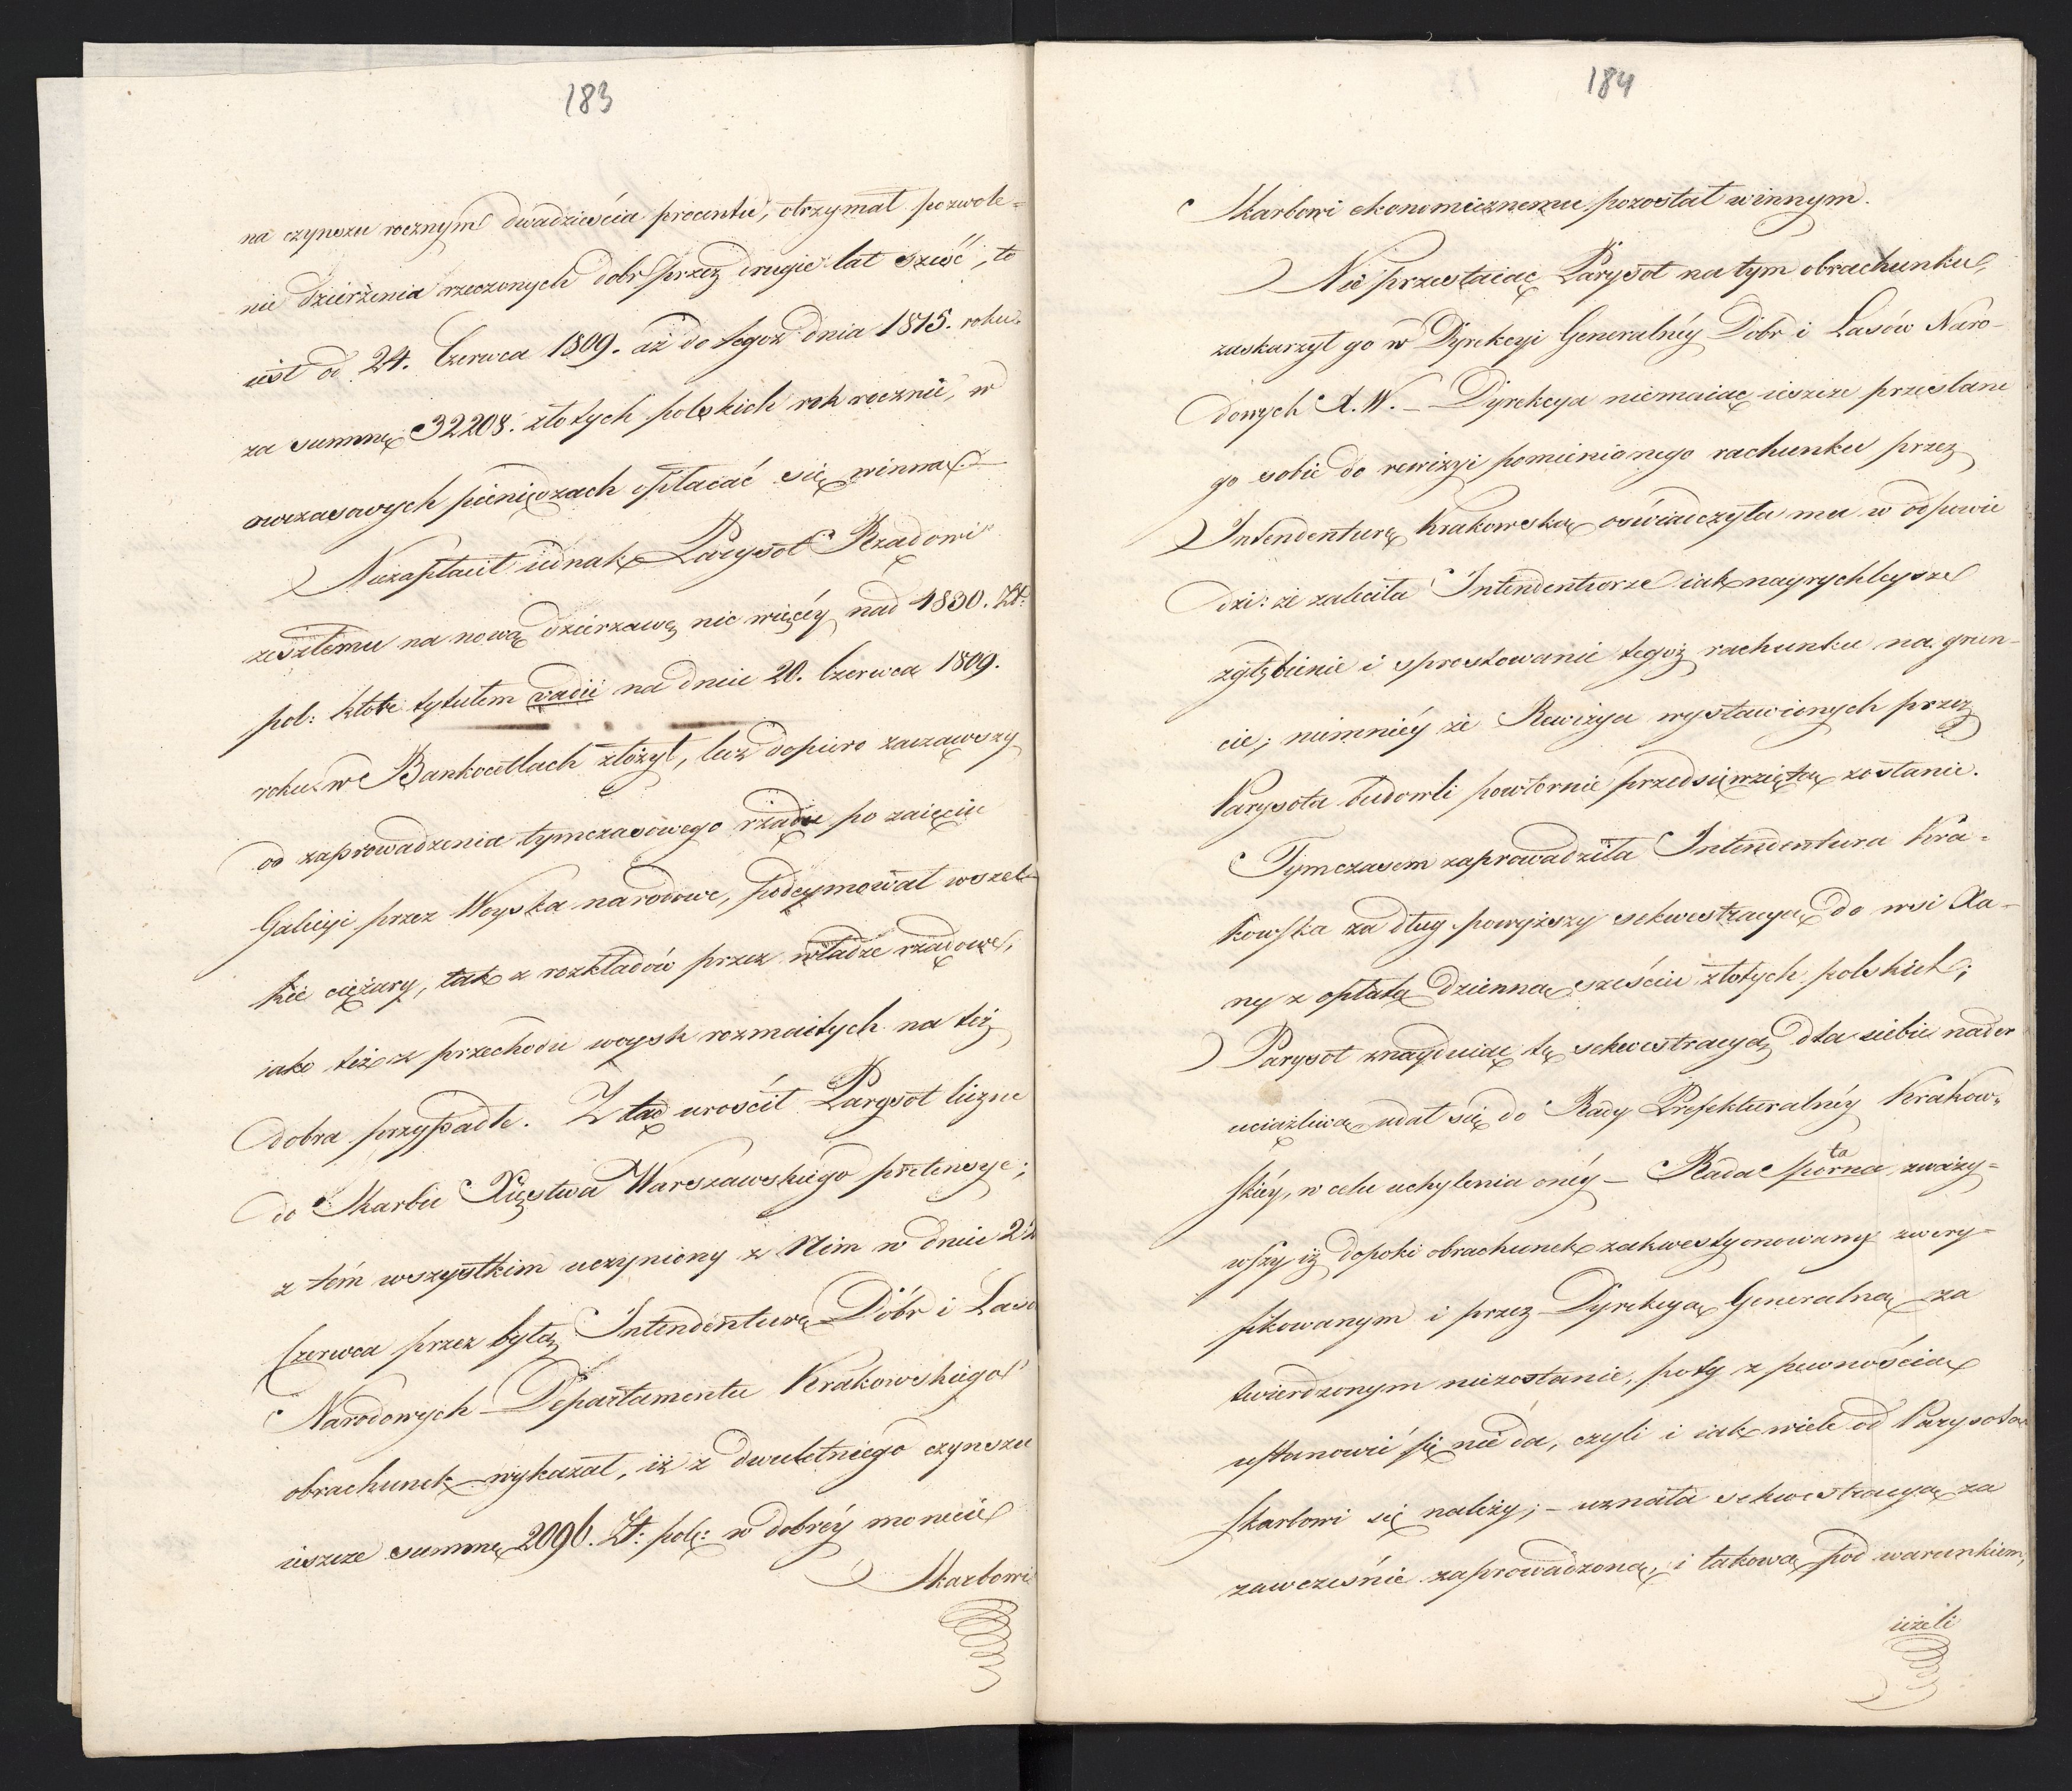 183
na czynszu rocznym dwadzieścia procentu, otrzymał pozwole=
nie dzierżenia rzeczonych dobr przez drugie lat sześć, to
iest od 24. Czerwca 1809. aż do tegoż dnia 1815. roku.
za summę 32208. złotych polskich rok rocznie, w
owczasowych pieniędzach opłacać się winną.—
Niezapłacił iednak Parysot Rządowi
zeszłemu na nową dzierzawę nic więcéy nad 4830. Zł:
pol: które tytułem vadii na dniu 20. Czerwca 1809.
roku w Bankocetlach złożył, lecz dopiero zacząwszy
od zaprowadzenia tymczasowego rządu po zaięciu
Galicyi przez Woyska narodowe, podeymował wszel-
kie ciężary, tak z rozkładów przez władze rządowe,
iako też z przechodu woysk rozmaitych na też
dobra przypadłe. Z tąd urościł Parysot liczne
do Skarbu Xięstwa Warszawskiego pretensye;
z tém wszystkim uczyniony z Nim w dniu 22
Czerwca przez byłą Intendenturę Dóbr i Laso
Narodowych Departamentu Krakowskiego
obrachunek wykazał, iż z dwuletniego czynszu
ieszcze summę 2096. Zł: pol: w dobréy monecie
Skarbowi
184
Skarbowi ekonomicznemu pozostał winnym.
Nie przestaiąc Parysot na tym obrachunku,
zaskarzył go w Dyrekcyi Generalnéy Dóbr i Lasów Naro-
dowych X. W. – Dyrekcya niemaiąc ieszcze przesłane
go sobie do rewizyi pomienionego rachunku przez
Intendenturę Krakowską oświadczyła mu w odpowie
dzi: że zaleciła Intendenturze iak nayrychleysze
zgłębienie i sprostowanie tegoż rachunku na grun-
cie; niemniéy że Rewizya wystawionych przez
Parysota budowli powtornie przedsięwziętą zostanie.
Tymczasem zaprowadziła Intendentura Kra-
kowska za dług powyższy sekwestracyą do wsi Xa-
ny z opłatą dzienną sześciu złotych polskich;
Parysot znayduiąc tę sekwestracyą dla siebie nader
uciążliwą udał się do Rady Prefekturalnéy Krakow-
skiéy, w celu uchylenia onéy – Rada sporna zważy-
ta
wszy iż dopoki obrachunek zakwestyonowany zwery-
fikowanym i przez Dyrekcyą Generalną za
twierdzonym niezostanie, poty z pewnością
ustanowić się nie da, czyli i iak wiele od Parysota
Skarbowi się należy; – uznała sekwestracyą za
zawcześnie zaprowadzoną, i takową pod warunkiem,
ieżeli